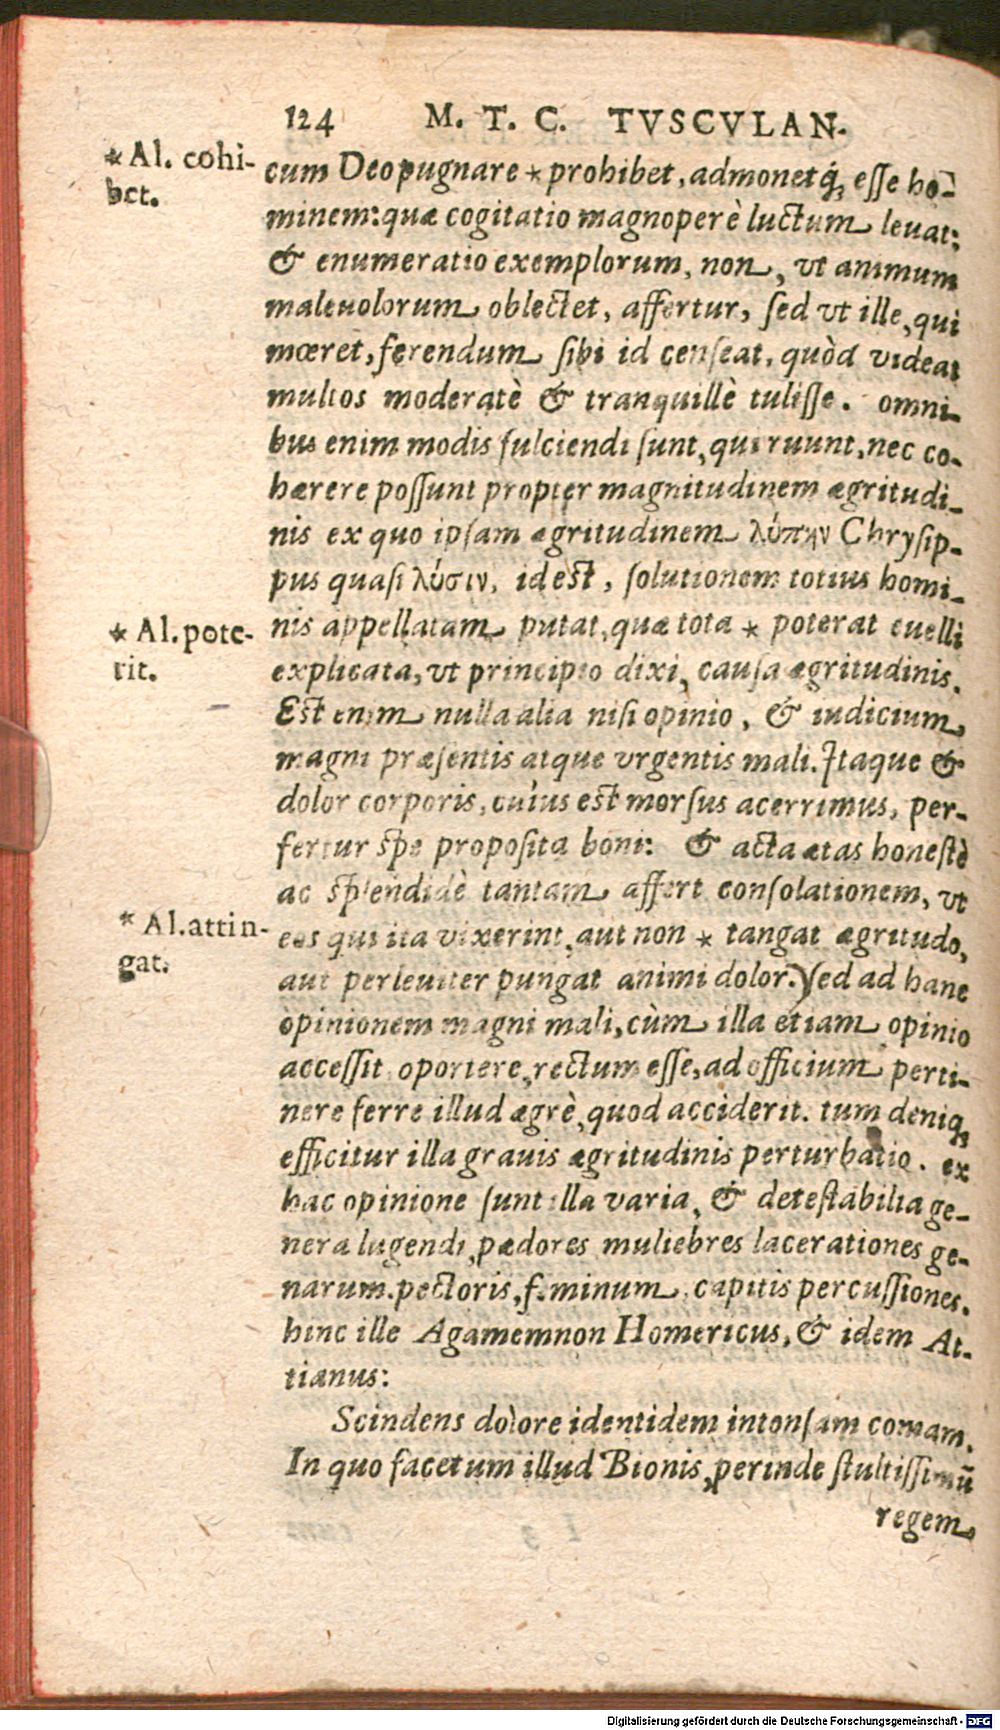 124 M. T. C. TVSCVLAN.
* Al. cohi-
bet.
cum Deo pugnare * prohibet, admonetq́; esse ho-
minem: quæ cogitatio magnoperè luctum leuat:
& enumeratio exemplorum, non, vt animum
maleuolorum oblectet, affertur, sed vt ille, qui
mœret, ferendum sibi id censeat, quòd videat
multos moderatè & tranquillè tulisse. omni-
bus enim modis fulciendi sunt, qui ruunt, nec co-
hærere possunt propter magnitudinem ægritudi-
nis ex quo ipsam ægritudinem λύπην Chrysip-
pus quasi λύσιν, id est, solutionem totius homi-
* Al. pote-
rit.
nis appellatam putat, quæ tota * poterat euelli
explicata, vt principio dixi, causa ægritudinis.
Est enim nulla alia nisi opinio, & iudicium
magni præsentis atque vrgentis mali. Itaque &
dolor corporis, cuius est morsus acerrimus, per-
fertur spe proposita boni: & acta ætas honestè
ac splendidè tantam affert consolationem, vt
* Al. attin-
gat.
eos qui ita vixerint, aut non * tangat ægritudo,
aut perleuiter pungat animi dolor. Sed ad hanc
opinionem magni mali, cùm illa etiam opinio
accessit oportere, rectum esse, ad officium perti-
nere ferre illud ægrè, quod acciderit. tum deniq;
efficitur illa grauis ægritudinis perturbatio. ex
hac opinione sunt illa varia, & detestabilia ge-
nera lugendi, pædores muliebres lacerationes ge-
narum. pectoris, feminum, capitis percussiones.
hinc ille Agamemnon Homericus, & idem At-
tianus:
Scindens dolore identidem intonsam comam.
In quo facetum illud Bionis, perinde stultissimũ
regem
Digitalisierung gefördert durch die Deutsche Forschungsgemeinschaft - DFG